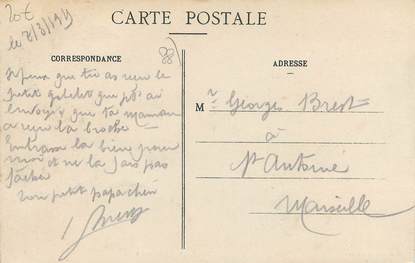 20€
le 7/3/19
CARTE POSTALE
CORRESPONDANCE
ADRESSE
que tu as reçu le
petit que j'ai
envoyé que ta maman
a reçu la broche
Embrasse la bien pour
moi et ne la fais pas
fâcher
ton petit papa chéri
Mr Georges Brest
à
St Antoine
Marseille